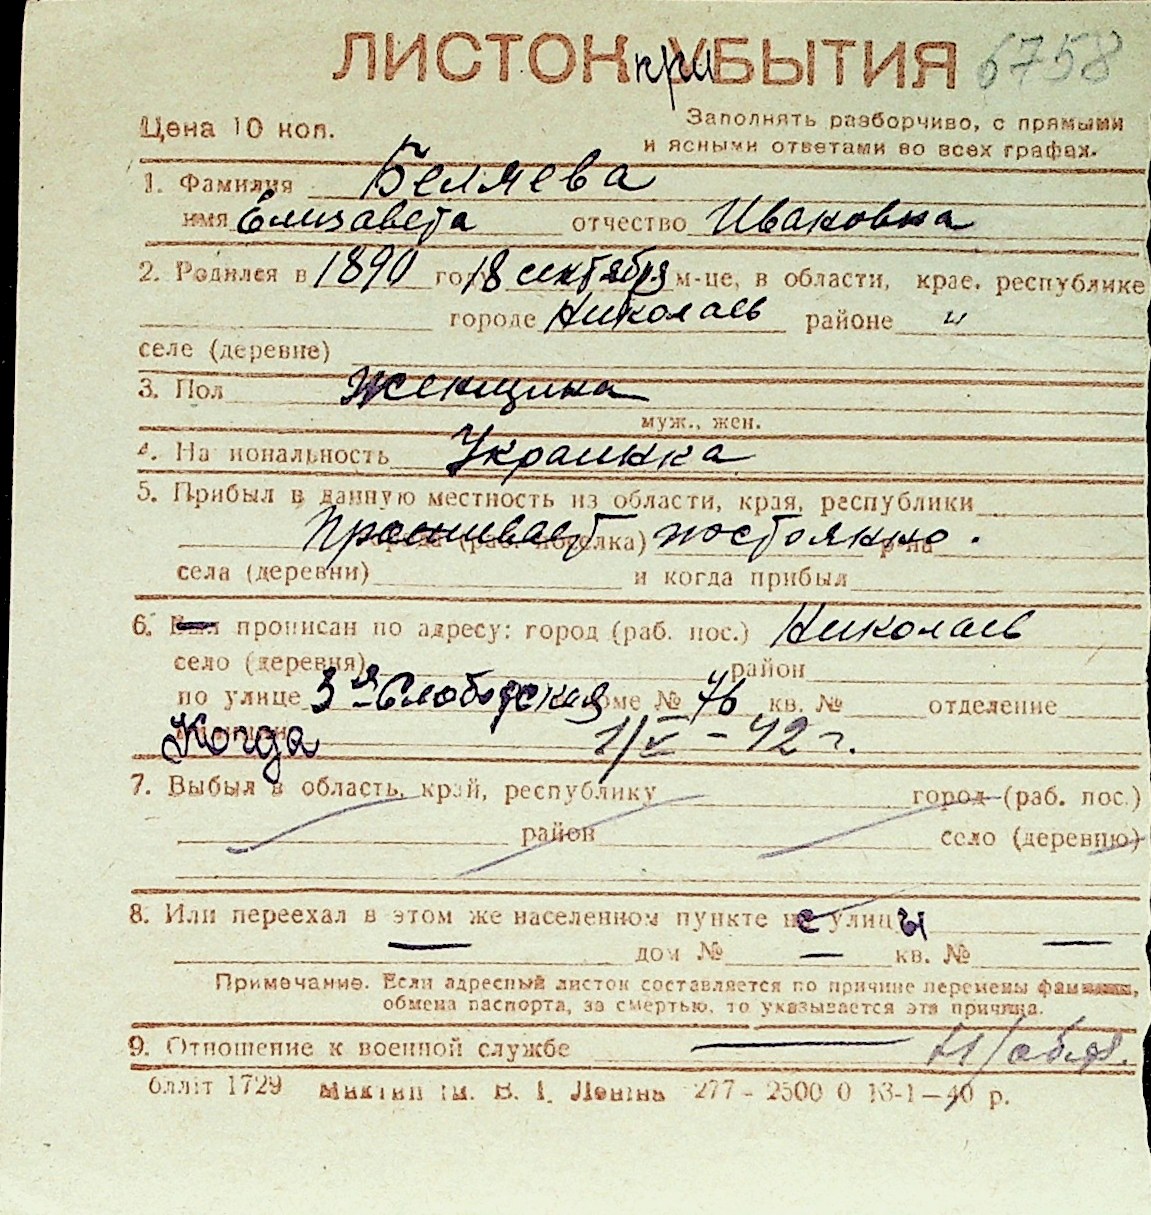 ЛИСТОК при УБЫТИЯ 6758
Цена 10 коп.
Заполнять разборчиво, с прямыми
и ясными ответами во всех графах.
1. Фамилия Беляева
имя Елизавета отчество Ивановна
2. Родился в 1890 году 18 сентября м-це, в области, крае, республике
городе Николаев районе "
селе (деревне)
3. Пол Женщина
муж., жен.
4. На иональность Украинка
5. Прибыл в данную местность из области, края, республики
Проживает постоянно.
города (раб. поселка) р-на
села (деревни) и когда прибыл
6. Был прописан по адресу: город (раб. пос.) Николаев
село (деревня) район
по улице 3я Слободская доме № 76 кв. № отделение
Когда 1/V - 42 г.
7. Выбыл в область, край, республику город (раб. пос.)
район село (деревню)
8. Или переехал в этом же населенном пункте с улицы
— дом № — кв. № —
Примечание. Если адресный листок составляется по причине перемены фамилии,
обмена паспорта, за смертью, то указывается эта причина.
9. Отношение к военной службе —
блліт 1729 Миктип ім. В. І. Леніна 277 - 2500 0 13-1-40 р.